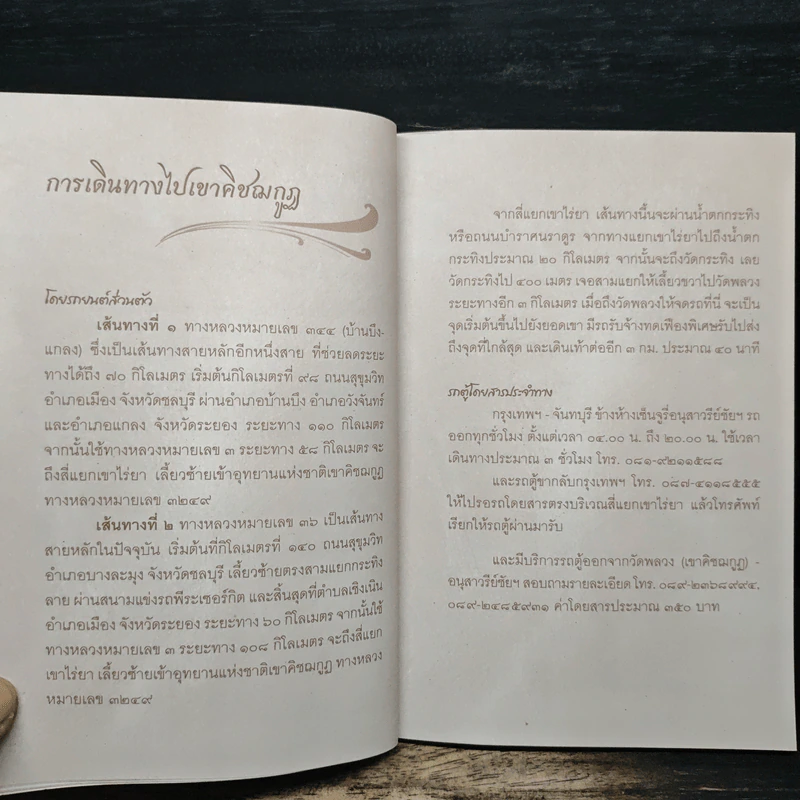 การเดินทางไปเขาคิชฌกูฏ
โดยรถยนต์ส่วนตัว
เส้นทางที่ ๑ ทางหลวงหมายเลข ๓๔๔ (บ้านบึง-
แกลง) ซึ่งเป็นเส้นทางสายหลักอีกหนึ่งสาย ที่ช่วยลดระยะ
ทางได้ถึง ๗๐ กิโลเมตร เริ่มต้นกิโลเมตรที่ ๙๘ ถนนสุขุมวิท
อำเภอเมือง จังหวัดชลบุรี ผ่านอำเภอบ้านบึง อำเภอวังจันทร์
และอำเภอแกลง จังหวัดระยอง ระยะทาง ๑๑๐ กิโลเมตร
จากนั้นใช้ทางหลวงหมายเลข ๓ ระยะทาง ๕๘ กิโลเมตร จะ
ถึงสี่แยกเขาไร่ยา เลี้ยวซ้ายเข้าอุทยานแห่งชาติเขาคิชฌกูฏ
ทางหลวงหมายเลข ๓๒๔๙
เส้นทางที่ ๒ ทางหลวงหมายเลข ๓๖ เป็นเส้นทาง
สายหลักในปัจจุบัน เริ่มต้นที่กิโลเมตรที่ ๑๔๐ ถนนสุขุมวิท
อำเภอบางละมุง จังหวัดชลบุรี เลี้ยวซ้ายตรงสามแยกกระทิง
ลาย ผ่านสนามแข่งรถพีระเซอร์กิต และสิ้นสุดที่ตำบลเชิงเนิน
อำเภอเมือง จังหวัดระยอง ระยะทาง ๖๐ กิโลเมตร จากนั้นใช้
ทางหลวงหมายเลข ๓ ระยะทาง ๑๐๘ กิโลเมตร จะถึงสี่แยก
เขาไร่ยา เลี้ยวซ้ายเข้าอุทยานแห่งชาติเขาคิชฌกูฏ ทางหลวง
หมายเลข ๓๒๔๙
จากสี่แยกเขาไร่ยา เส้นทางนี้จะผ่านน้ำตกกระทิง
หรือถนนบำราศนราดูร จากทางแยกเขาไร่ยาไปถึงน้ำตก
กระทิงประมาณ ๒๐ กิโลเมตร จากนั้นจะถึงวัดกระทิง เลย
วัดกระทิงไป ๔๐๐ เมตร เจอสามแยกให้เลี้ยวขวาไปวัดพลวง
ระยะทางอีก ๓ กิโลเมตร เมื่อถึงวัดพลวงให้จดรถที่นี่ จะเป็น
จุดเริ่มต้นขึ้นไปยังยอดเขา มีรถรับจ้างทดเฟืองพิเศษรับไปส่ง
ถึงจุดที่ใกล้สุด และเดินเท้าต่ออีก ๓ กม. ประมาณ ๔๐ นาที
รถตู้โดยสารประจำทาง
กรุงเทพฯ - จันทบุรี ข้างห้างเซ็นจูรี่อนุสาวรีย์ชัยฯ รถ
ออกทุกชั่วโมง ตั้งแต่เวลา ๐๔.๐๐ น. ถึง ๒๐.๐๐ น. ใช้เวลา
เดินทางประมาณ ๓ ชั่วโมง โทร. ๐๘๑-๙๒๑๑๕๘๘
และรถตู้ขากลับกรุงเทพฯ โทร. ๐๘๗-๔๑๑๘๕๕๕
ให้ไปรอรถโดยสารตรงบริเวณสี่แยกเขาไร่ยา แล้วโทรศัพท์
เรียกให้รถตู้ผ่านมารับ
และมีบริการรถตู้ออกจากวัดพลวง (เขาคิชฌกูฏ) -
อนุสาวรีย์ชัยฯ สอบถามรายละเอียด โทร. ๐๘๙-๒๓๖๘๙๙๔,
๐๘๙-๒๔๘๕๙๓๑ ค่าโดยสารประมาณ ๓๕๐ บาท